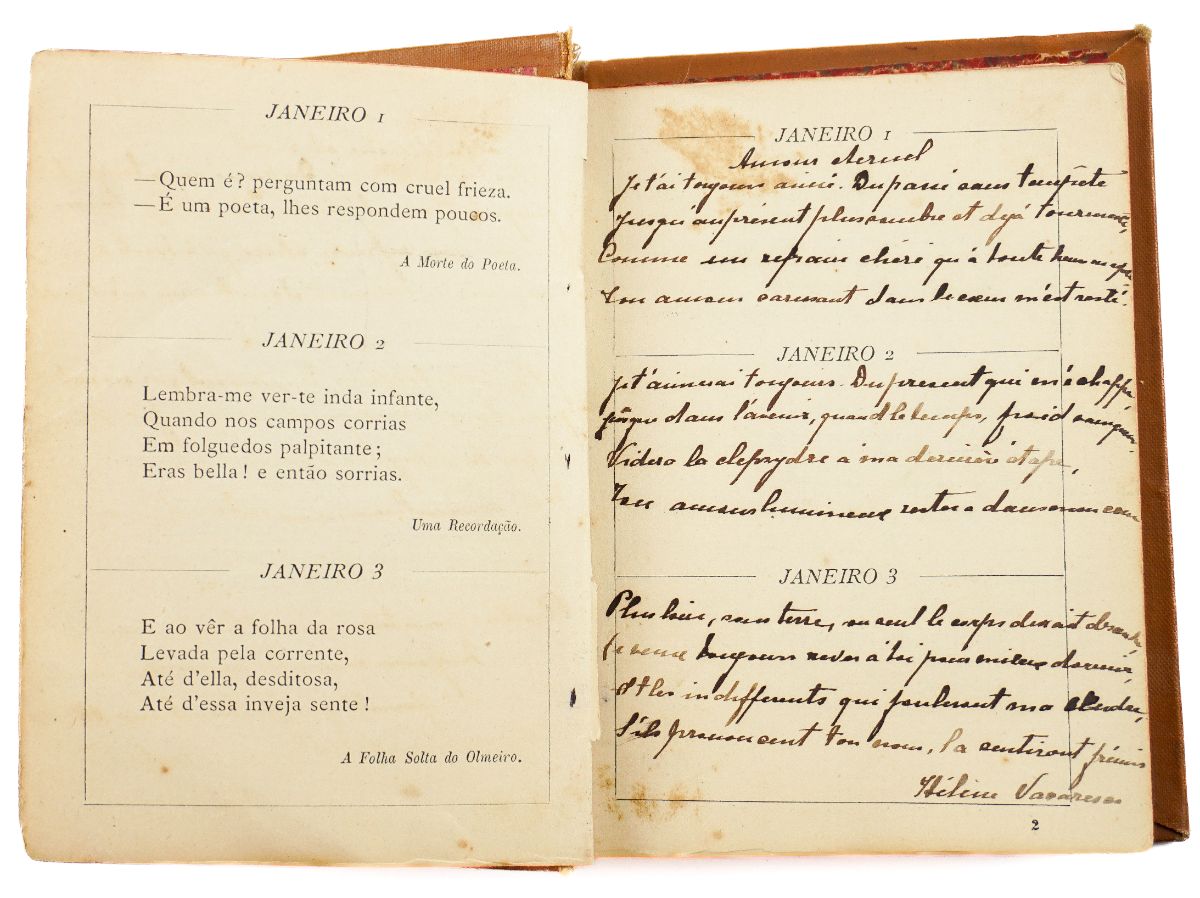 JANEIRO 1
—Quem é? perguntam com cruel frieza.
—É um poeta, lhes respondem poucos.
A Morte do Poeta.
JANEIRO 2
Lembra-me ver-te inda infante,
Quando nos campos corrias
Em folguedos palpitante;
Eras bella! e então sorrias.
Uma Recordação.
JANEIRO 3
E ao vêr a folha da rosa
Levada pela corrente,
Até d'ella, desditosa,
Até d'essa inveja sente!
A Folha Solta do Olmeiro.
JANEIRO 1
Amour eternel
Je t'ai toujours aimé. Du passé sans
Jusqu'au présent plus sombre et dejá
Comme un refrain chéri qu'á toute heure on
Ton amour caressant dans le cœur m'est resté.
JANEIRO 2
Je t'aimerai toujours. Du present qui m'échappe
jusque dans l'avenir, quand le temps, froid
Videra la clepsydre á ma dernière étape,
Ton amour lumineux restera dans mon cœur
JANEIRO 3
Plus loin, sous terre, ou seul le corps devait descendre,
Je veux toujours rever á toi pour mieux dormir,
Et les indifferents qui fouleront ma cendre,
S'ils prononcent ton nom, la sentiront frémir
Hélène Vacaresco
2